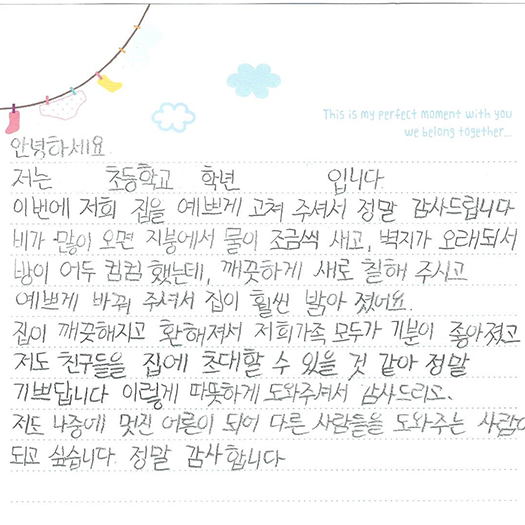 This is my perfect moment with you
we belong together...
안녕하세요.
저는 초등학교 학년 입니다.
이번에 저희 집을 예쁘게 고쳐 주셔서 정말 감사드립니다
비가 많이 오면 지붕에서 물이 조금씩 새고, 벽지가 오래되서
방이 어두 컴컴 했는데, 깨끗하게 새로 칠해 주시고
예쁘게 바꿔 주셔서 집이 훨씬 밝아 졌어요.
집이 깨끗해지고 환해져서 저희가족 모두가 기분이 좋아졌고
저도 친구들을 집에 초대할 수 있을 것 같아 정말
기쁘답니다 이렇게 따뜻하게 도와주셔서 감사드리고.
저도 나중에 멋진 어른이 되어 다른 사람들을 도와주는 사람이
되고 싶습니다. 정말 감사합니다